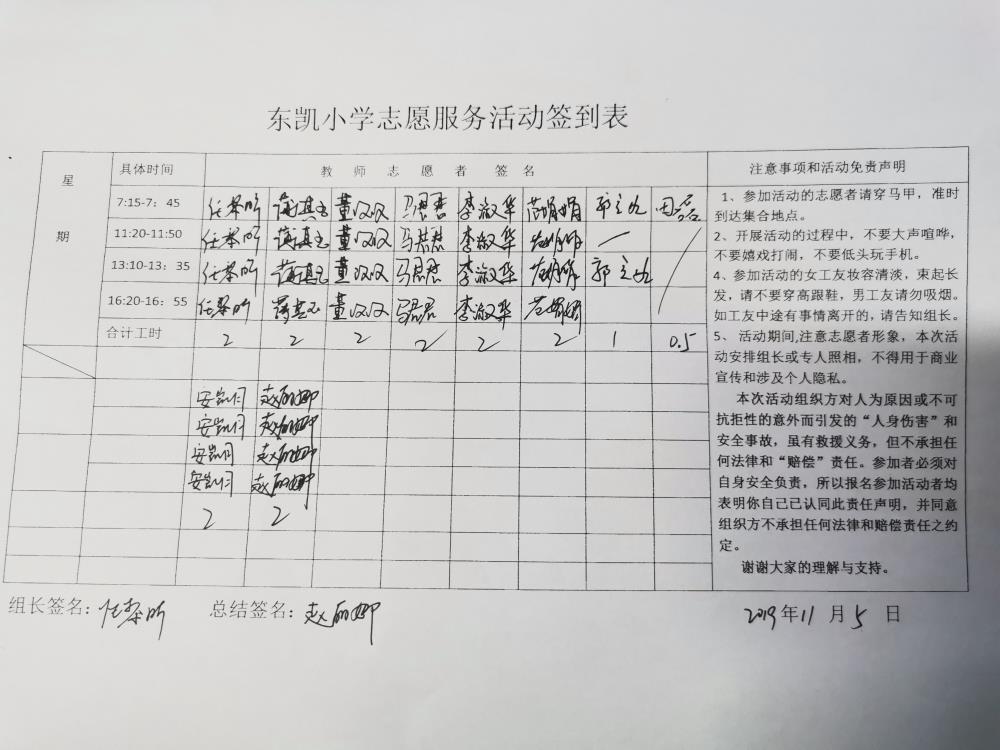 东凯小学志愿服务活动签到表
星期 具体时间 教师志愿者签名 注意事项和活动免责声明
7:15-7:45 董汉汉 李淑华
11:20-11:50 董汉汉 李淑华 —
13:10-13:35 董汉汉 李淑华
16:20-16:55 董汉汉 李淑华
合计工时 2 2 2 2 2 2 1 0.5
安凯月 赵丽娜
安凯月 赵丽娜
安凯月 赵丽娜
安凯月 赵丽娜
2 2
1、参加活动的志愿者请穿马甲，准时
到达集合地点。
2、开展活动的过程中，不要大声喧哗，
不要嬉戏打闹，不要低头玩手机。
4、参加活动的女工友妆容清淡，束起长
发，请不要穿高跟鞋，男工友请勿吸烟。
如工友中途有事情离开的，请告知组长。
5、 活动期间,注意志愿者形象，本次活
动安排组长或专人照相，不得用于商业
宣传和涉及个人隐私。
本次活动组织方对人为原因或不可
抗拒性的意外而引发的“人身伤害”和
安全事故，虽有救援义务，但不承担任
何法律和“赔偿”责任。参加者必须对
自身安全负责，所以报名参加活动者均
表明你自己已认同此责任声明，并同意
组织方不承担任何法律和赔偿责任之约
定。
谢谢大家的理解与支持。
组长签名： 总结签名：赵丽娜 2019年11月5日